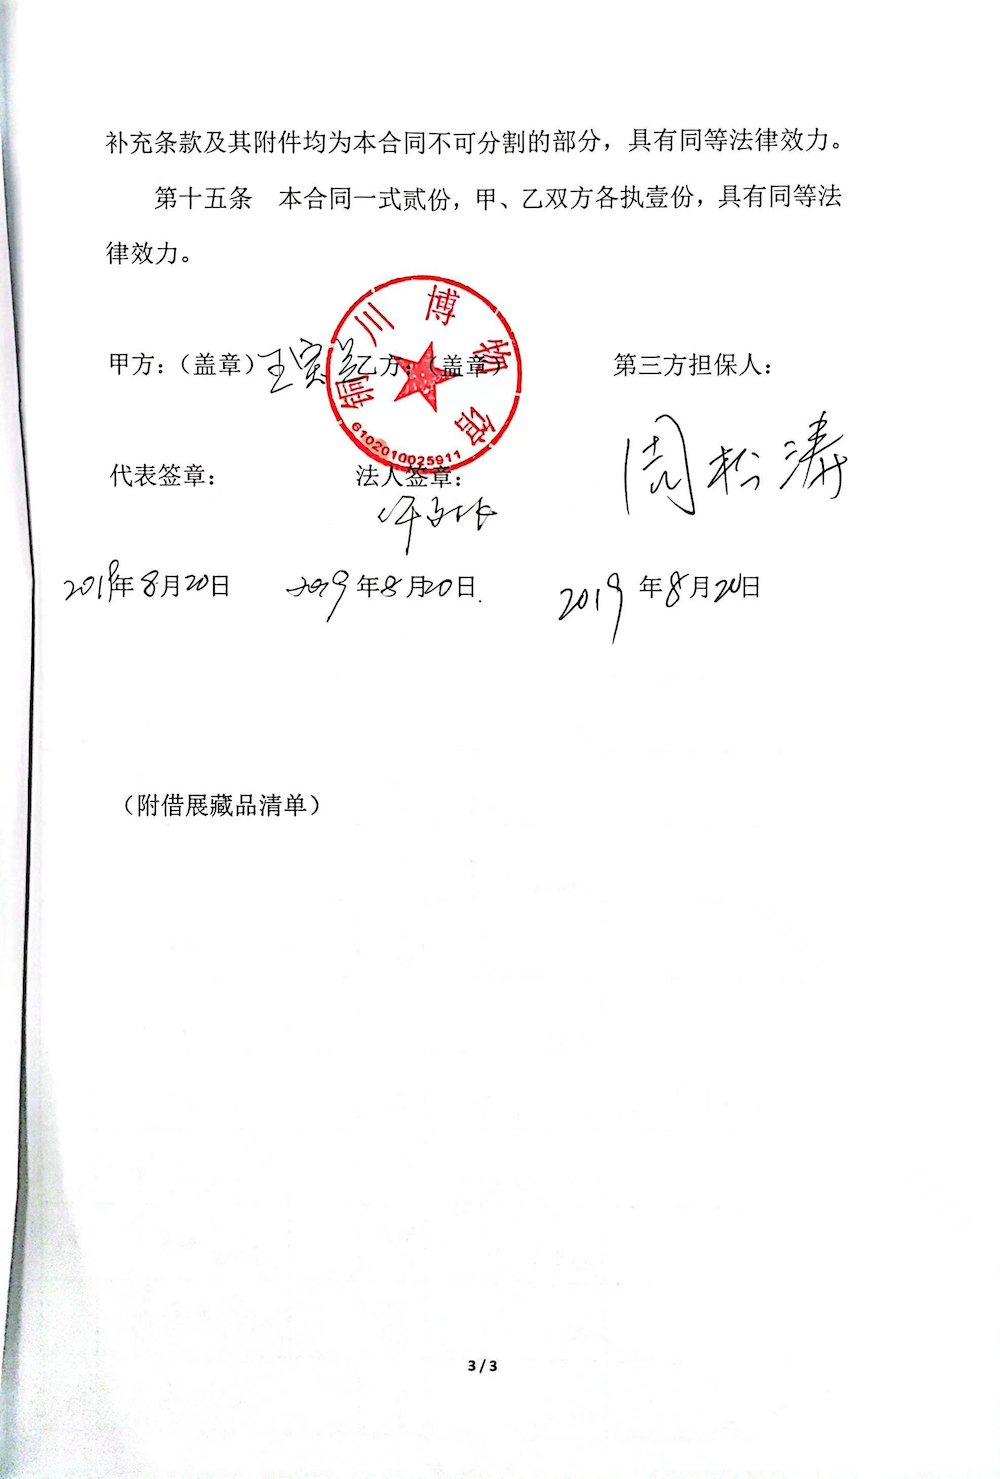 补充条款及其附件均为本合同不可分割的部分，具有同等法律效力。
第十五条　本合同一式贰份，甲、乙双方各执壹份，具有同等法
律效力。
铜川博物馆
6102010025911
甲方：（盖章）王寅 乙方：（盖章） 第三方担保人：
周松涛
代表签章： 法人签章：
2019年8月20日 2019年8月20日. 2019年8月20日
（附借展藏品清单）
3 / 3